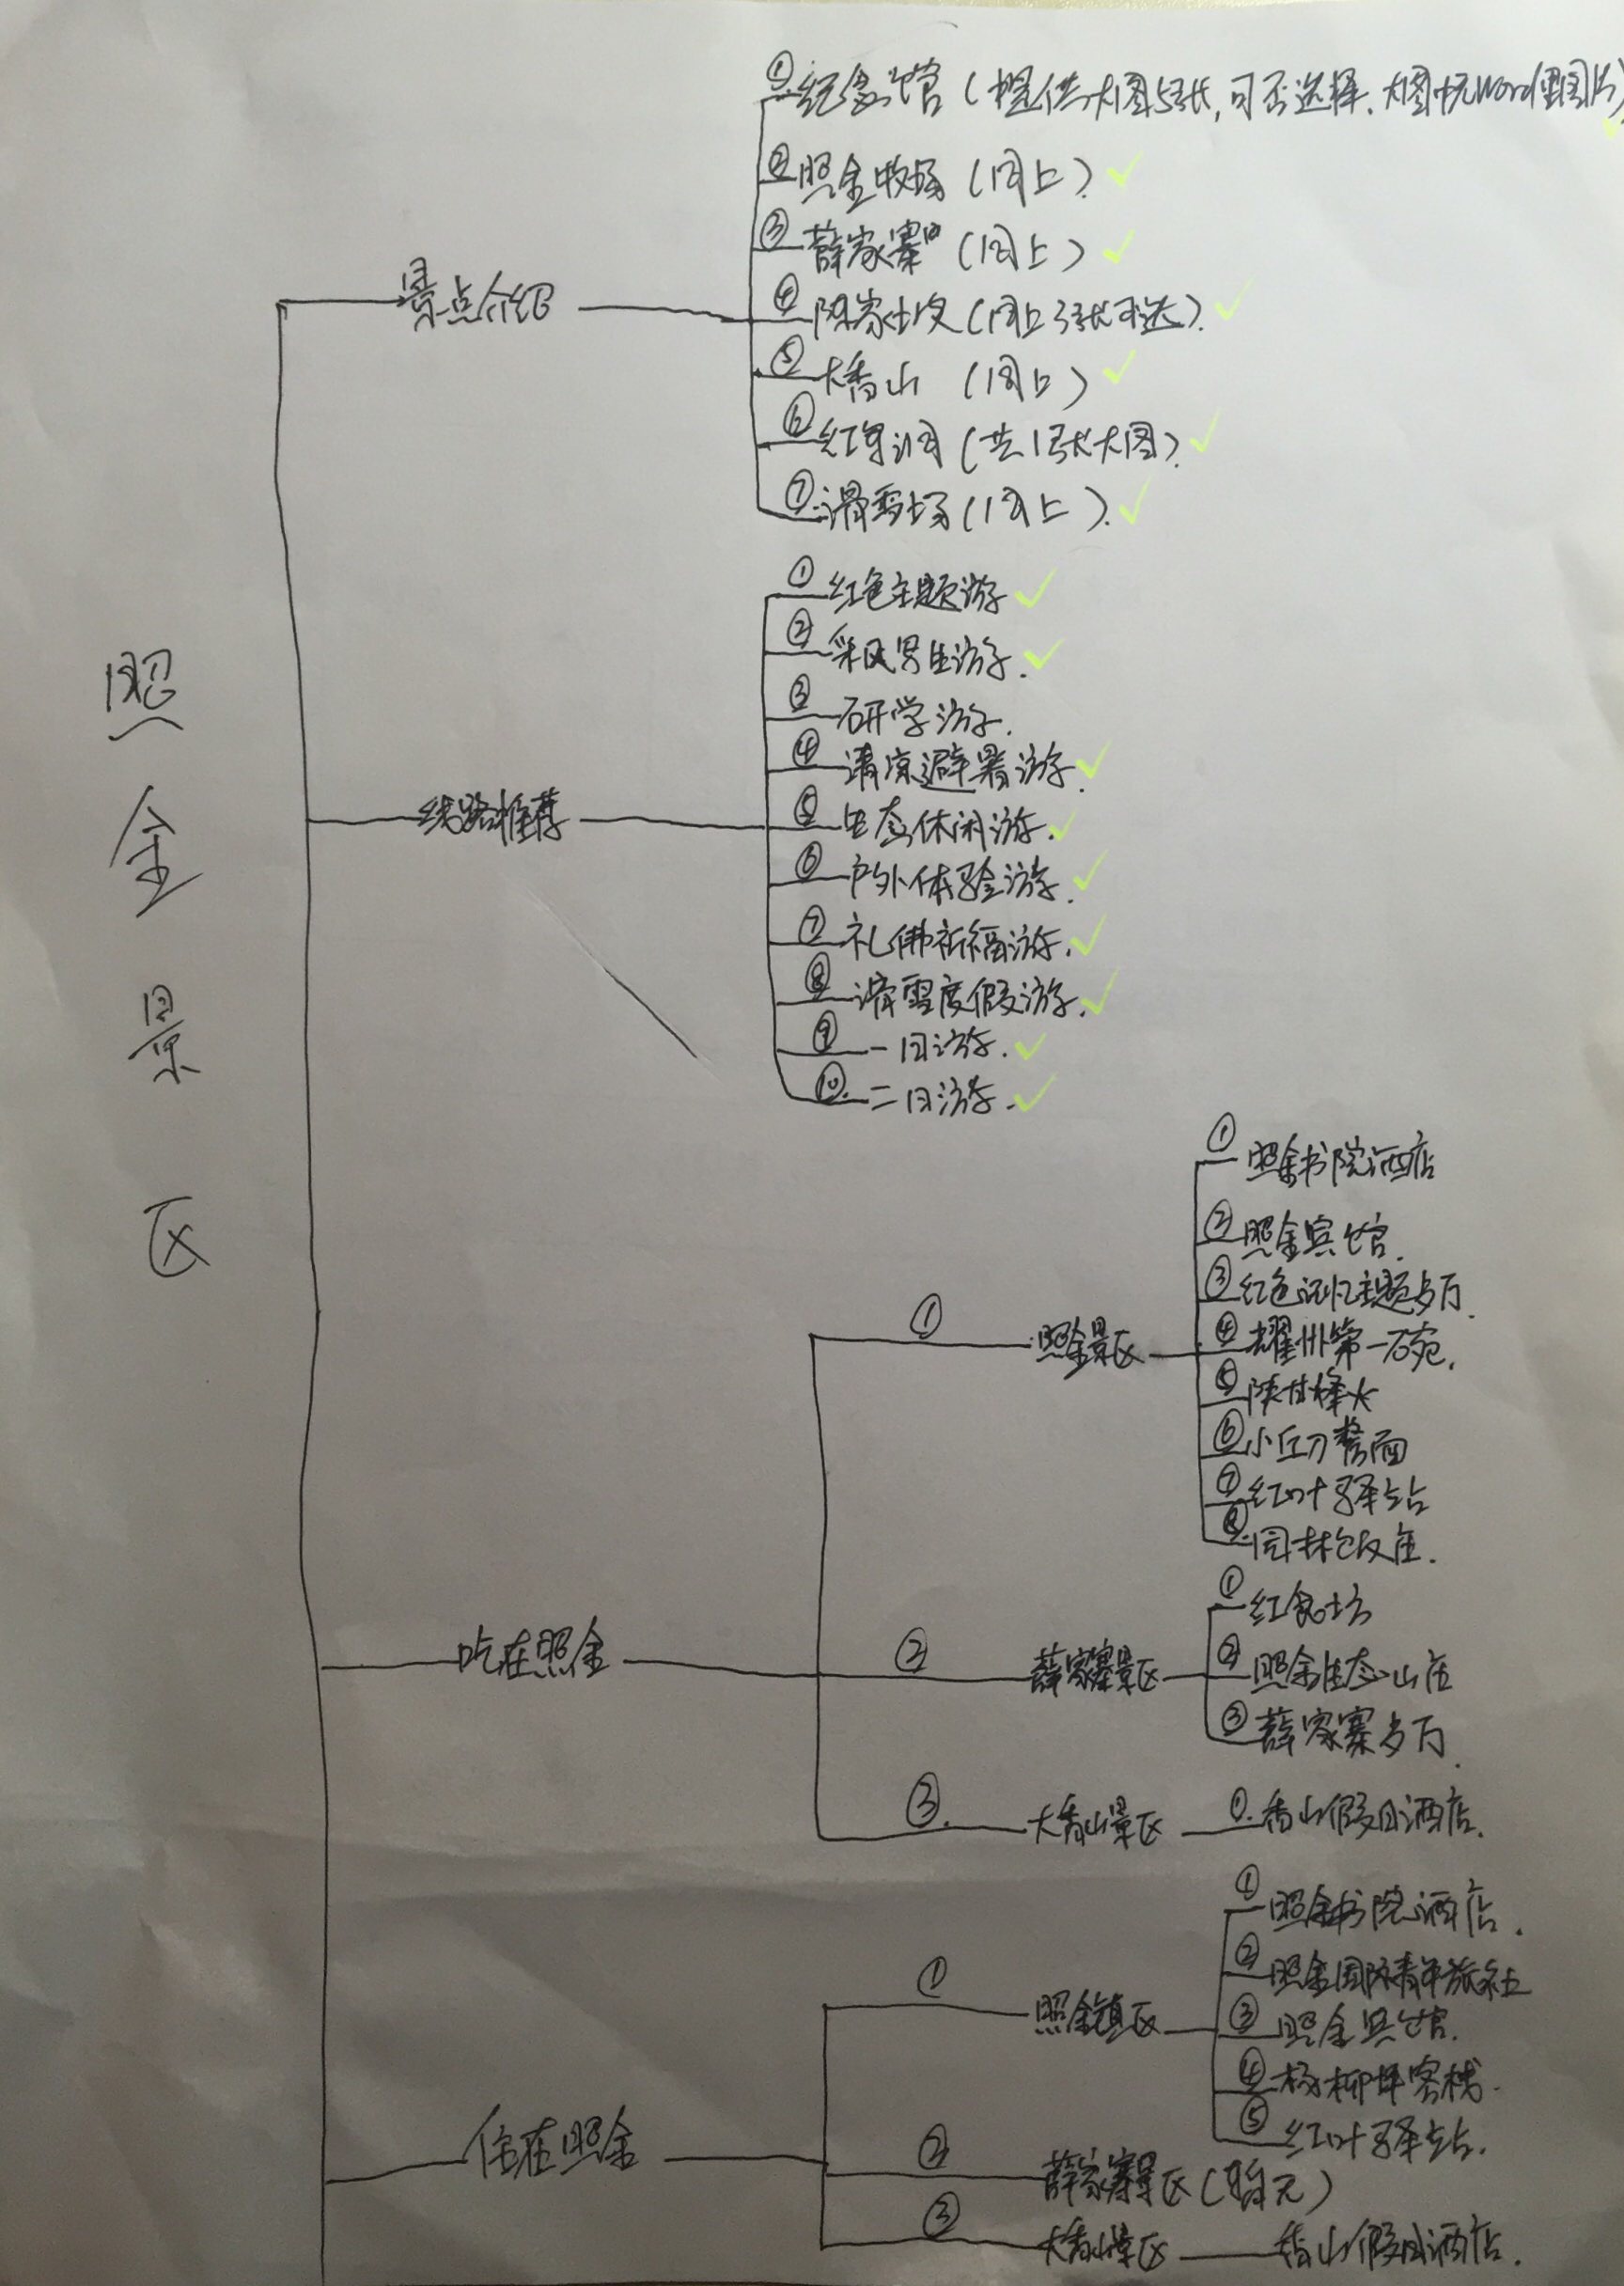 照金景区
景点介绍
①纪念馆(提供大图5张,可否选择.大图优Word里图片)
②照金牧场(同上)
③薛家寨(同上)
④陈家坡(同上3张可选).
⑤大香山(同上)
⑥红军洞(共1张大图).
⑦滑雪场(同上).
线路推荐
①红色主题游
②采风写生游.
③研学游.
④清凉避暑游.
⑤生态休闲游.
⑥户外体验游.
⑦礼佛祈福游.
⑧滑雪度假游.
⑨一日游.
⑩二日游.
吃在照金
①照金景区
①照金书院酒店
②照金宾馆.
③红色记忆主题多万.
④耀州第一碗.
⑤陕甘烽火
⑥小丘刀剺面
⑦红叶驿站
⑧园林饭庄.
②薛家寨景区
①红食坊
②照金生态山庄
③薛家寨多万.
③.大香山景区
①.香山假日酒店.
住在照金
①照金镇区
①照金书院酒店.
②照金国际青年旅社
③照金宾馆.
④杨柳坪客栈.
⑤红叶驿站.
②薛家寨景区(暂无)
③大香山景区
香山假日酒店.